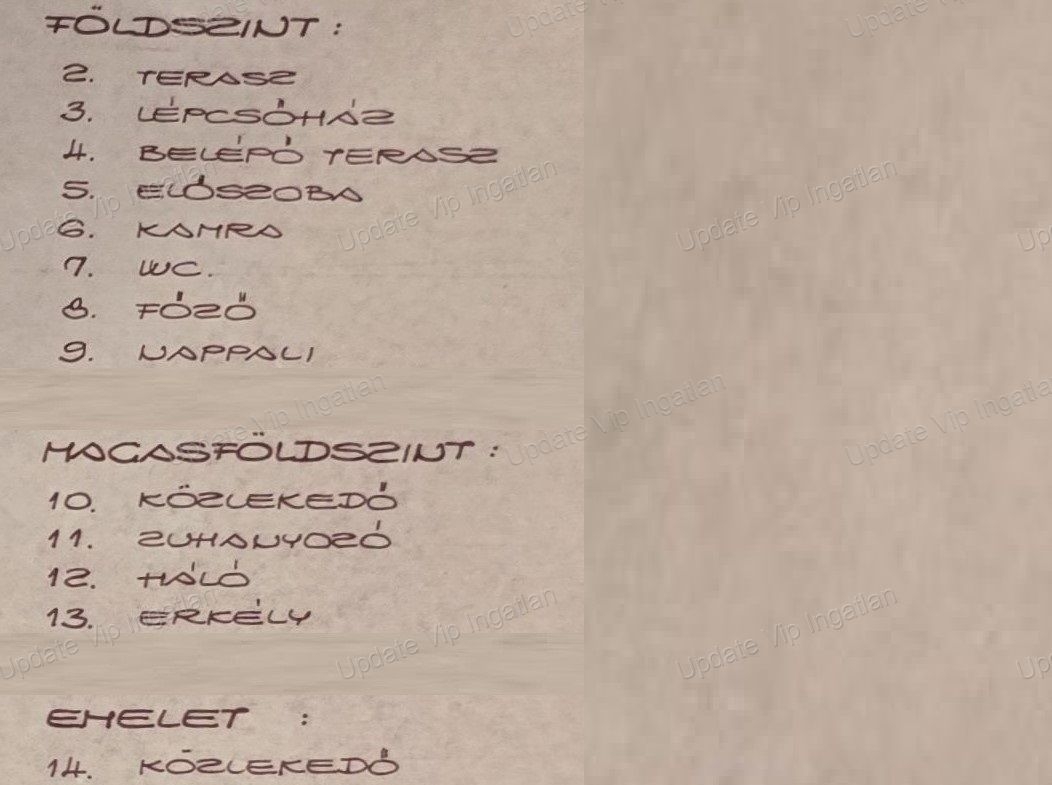 FÖLDSZINT :
2. TERASZ
3. LÉPCSŐHÁZ
4. BELÉPŐ TERASZ
5. ELŐSZOBA
6. KAMRA
7. WC.
8. FŐZŐ
9. NAPPALI
MAGASFÖLDSZINT :
10. KÖZLEKEDŐ
11. ZUHANYOZÓ
12. HÁLÓ
13. ERKÉLY
EMELET :
14. KÖZLEKEDŐ
Update Vip Ingatlan